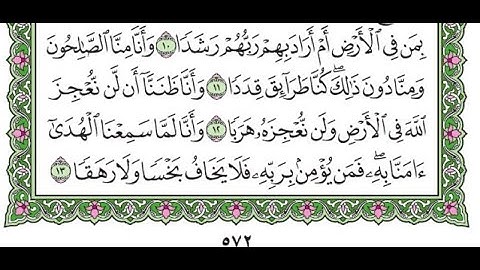 بِمَن فِي ٱلْأَرْضِ أَمْ أَرَادَ بِهِمْ رَبُّهُمْ رَشَدًا ١٠ وَأَنَّا مِنَّا ٱلصَّٰلِحُونَ
وَمِنَّا دُونَ ذَٰلِكَ ۖ كُنَّا طَرَآئِقَ قِدَدًا ١١ وَأَنَّا ظَنَنَّآ أَن لَّن نُّعْجِزَ
ٱللَّهَ فِي ٱلْأَرْضِ وَلَن نُّعْجِزَهُۥ هَرَبًا ١٢ وَأَنَّا لَمَّا سَمِعْنَا ٱلْهُدَىٰٓ
ءَامَنَّا بِهِۦ ۖ فَمَن يُؤْمِنۢ بِرَبِّهِۦ فَلَا يَخَافُ بَخْسًا وَلَا رَهَقًا ١٣
٥٧٢